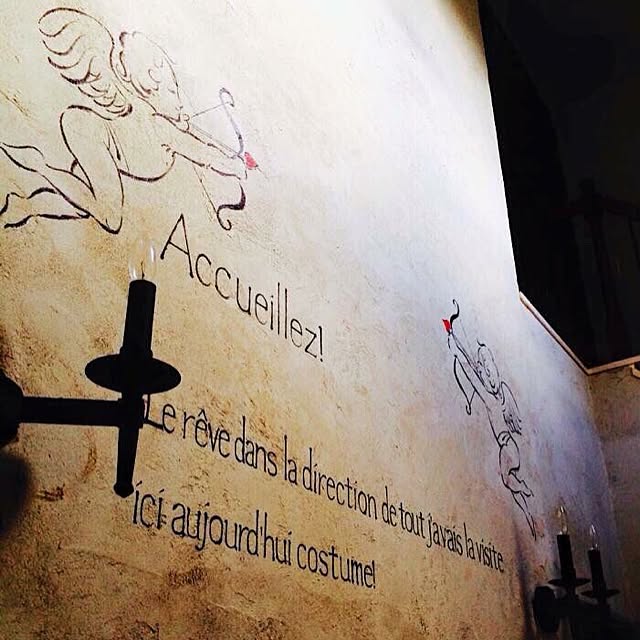 Accueillez!
Le rêve dans la direction de tout j'avais la visite
ici aujourd'hui costume!